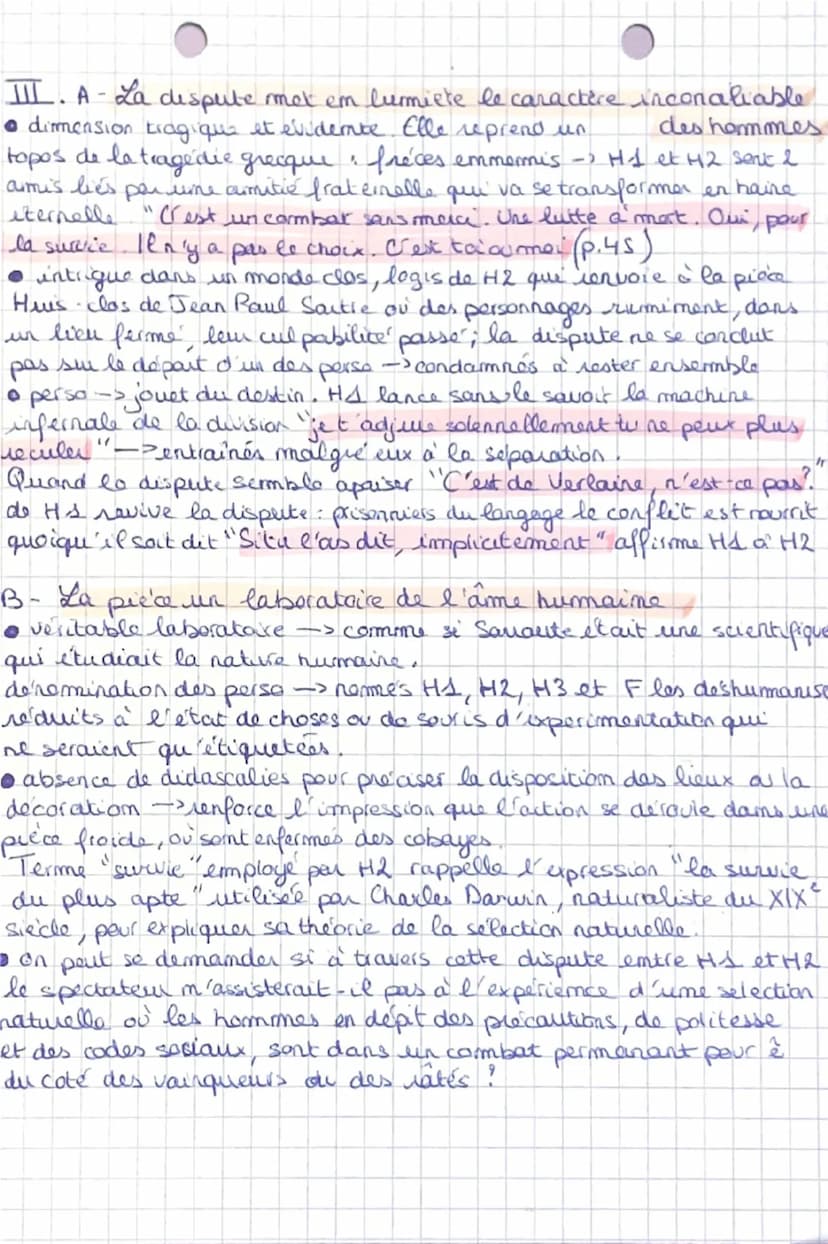 III. A - La dispute met en lumière le caractère inconciliable
des hommes
• dimension tragique et évidente. Elle reprend un
topos de la tragédie grecque : frères ennemis -> H1 et H2 sont 2
amis liés par une amitié fraternelle qui va se transformer en haine
éternelle "C'est un combat sans merci. Une lutte à mort. Oui, pour
la survie. Il n'y a pas le choix. C'est toi ou moi (p.45)
• intrigue dans un monde clos, logis de H2 qui renvoie à la pièce
Huis-clos de Jean Paul Sartre où des personnages ruminent, dans
un lieu fermé, leur culpabilité passé ; la dispute ne se conclut
pas sur le départ d'un des perso -> condamnés à rester ensemble
• perso -> jouet du destin. H1 lance sans le savoir la machine
infernale de la division "je t'adjure solennellement tu ne peux plus
reculer" -> entraînés malgré eux à la séparation.
Quand la dispute semble apaiser "C'est de Verlaine, n'est-ce pas?"
de H1 ravive la dispute : prisonniers du langage le conflit est nourrit
quoiqu'il soit dit "Si tu l'as dit, implicitement" affirme H1 à H2
B - La pièce un laboratoire de l'âme humaine
• véritable laboratoire -> comme si Sarraute était une scientifique
qui étudiait la nature humaine.
dénomination des perso -> nommés H1, H2, H3 et F les déshumanise
réduits à l'état de choses ou de souris d'experimentation qui
ne seraient qu'étiquetées.
• absence de didascalies pour préciser la disposition des lieux ou la
décoration -> renforce l'impression que l'action se déroule dans une
pièce froide, où sont enfermés des cobayes.
Terme "survie" employé par H2 rappelle l'expression "la survie
du plus apte" utilisée par Charles Darwin, naturaliste du XIXe
siècle, pour expliquer sa théorie de la sélection naturelle.
• On peut se demander si à travers cette dispute entre H1 et H2
le spectateur n'assisterait-il pas à l'expérience d'une selection
naturelle où les hommes en dépit des précautions, de politesse
et des codes sociaux, sont dans un combat permanant pour ê
du coté des vainqueurs ou des ratés ?